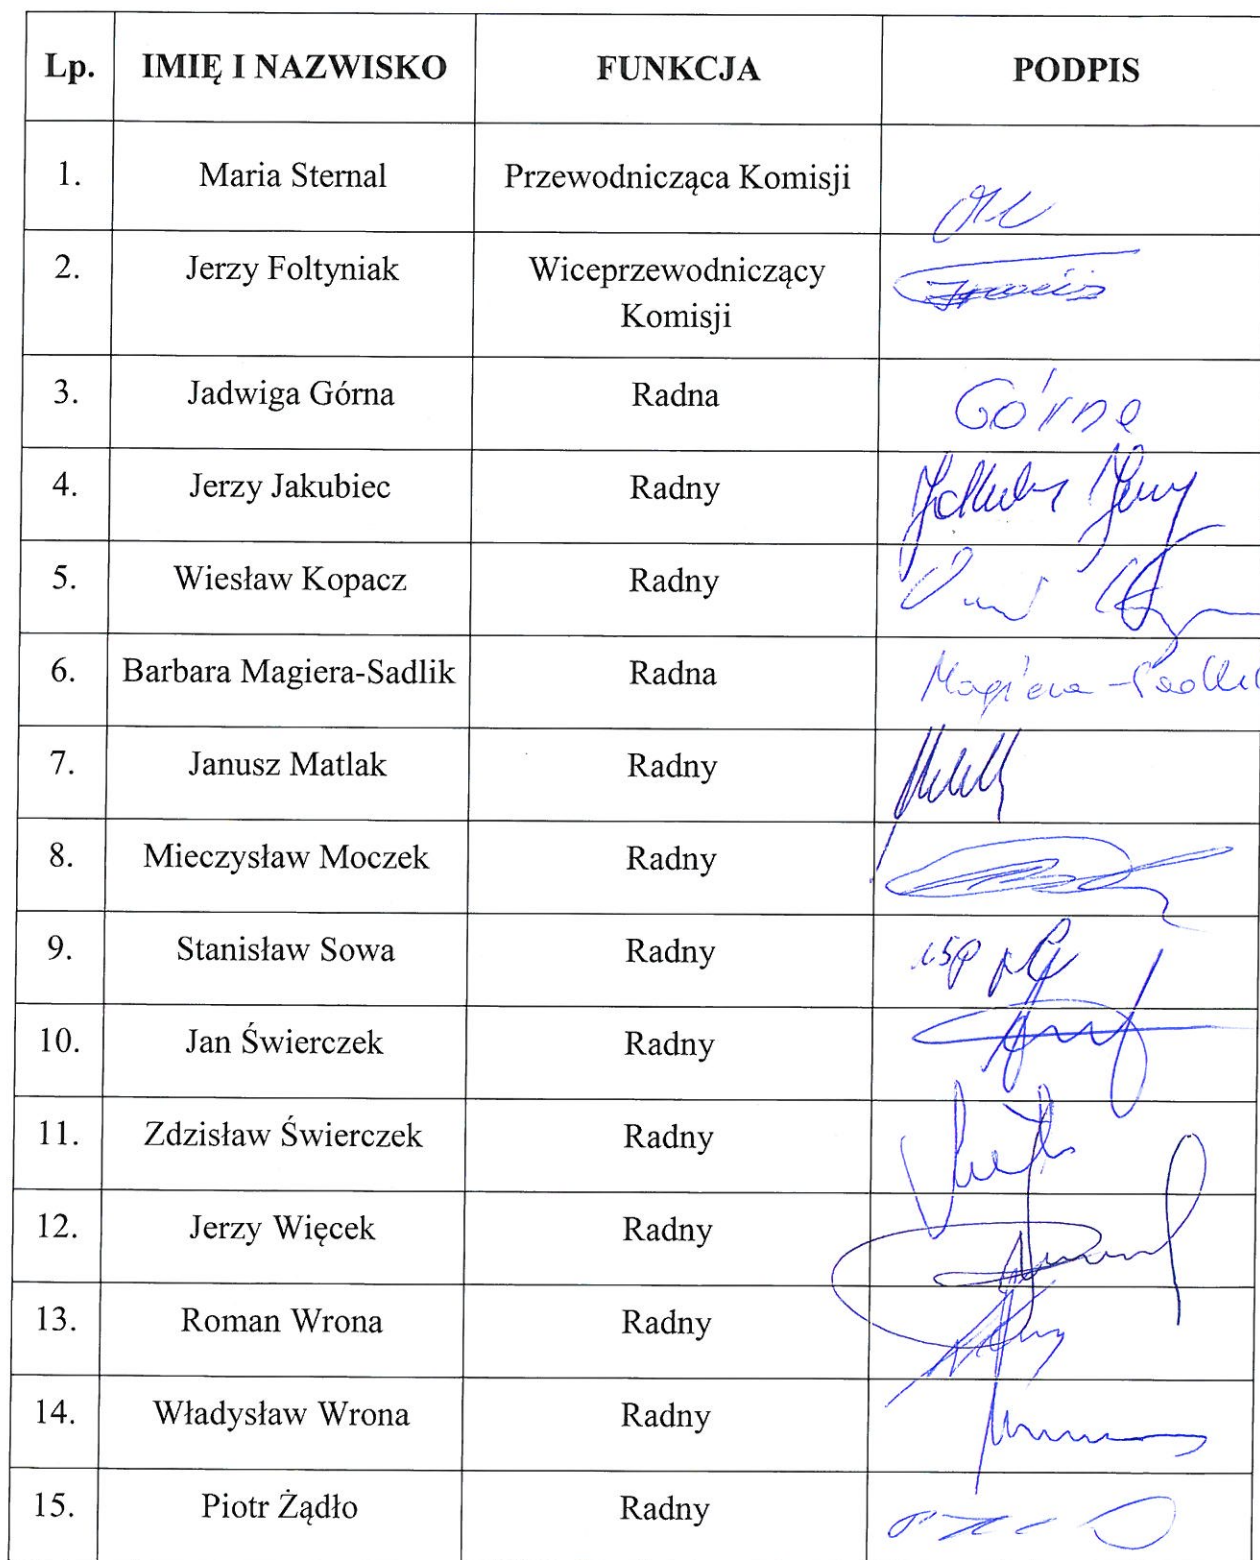 Lp. IMIĘ I NAZWISKO FUNKCJA PODPIS
1. Maria Sternal Przewodnicząca Komisji
2. Jerzy Foltyniak Wiceprzewodniczący
Komisji
3. Jadwiga Górna Radna Górna
4. Jerzy Jakubiec Radny
5. Wiesław Kopacz Radny
6. Barbara Magiera-Sadlik Radna Magiera-Sadlik
7. Janusz Matlak Radny
8. Mieczysław Moczek Radny
9. Stanisław Sowa Radny
10. Jan Świerczek Radny
11. Zdzisław Świerczek Radny
12. Jerzy Więcek Radny
13. Roman Wrona Radny
14. Władysław Wrona Radny
15. Piotr Żądło Radny